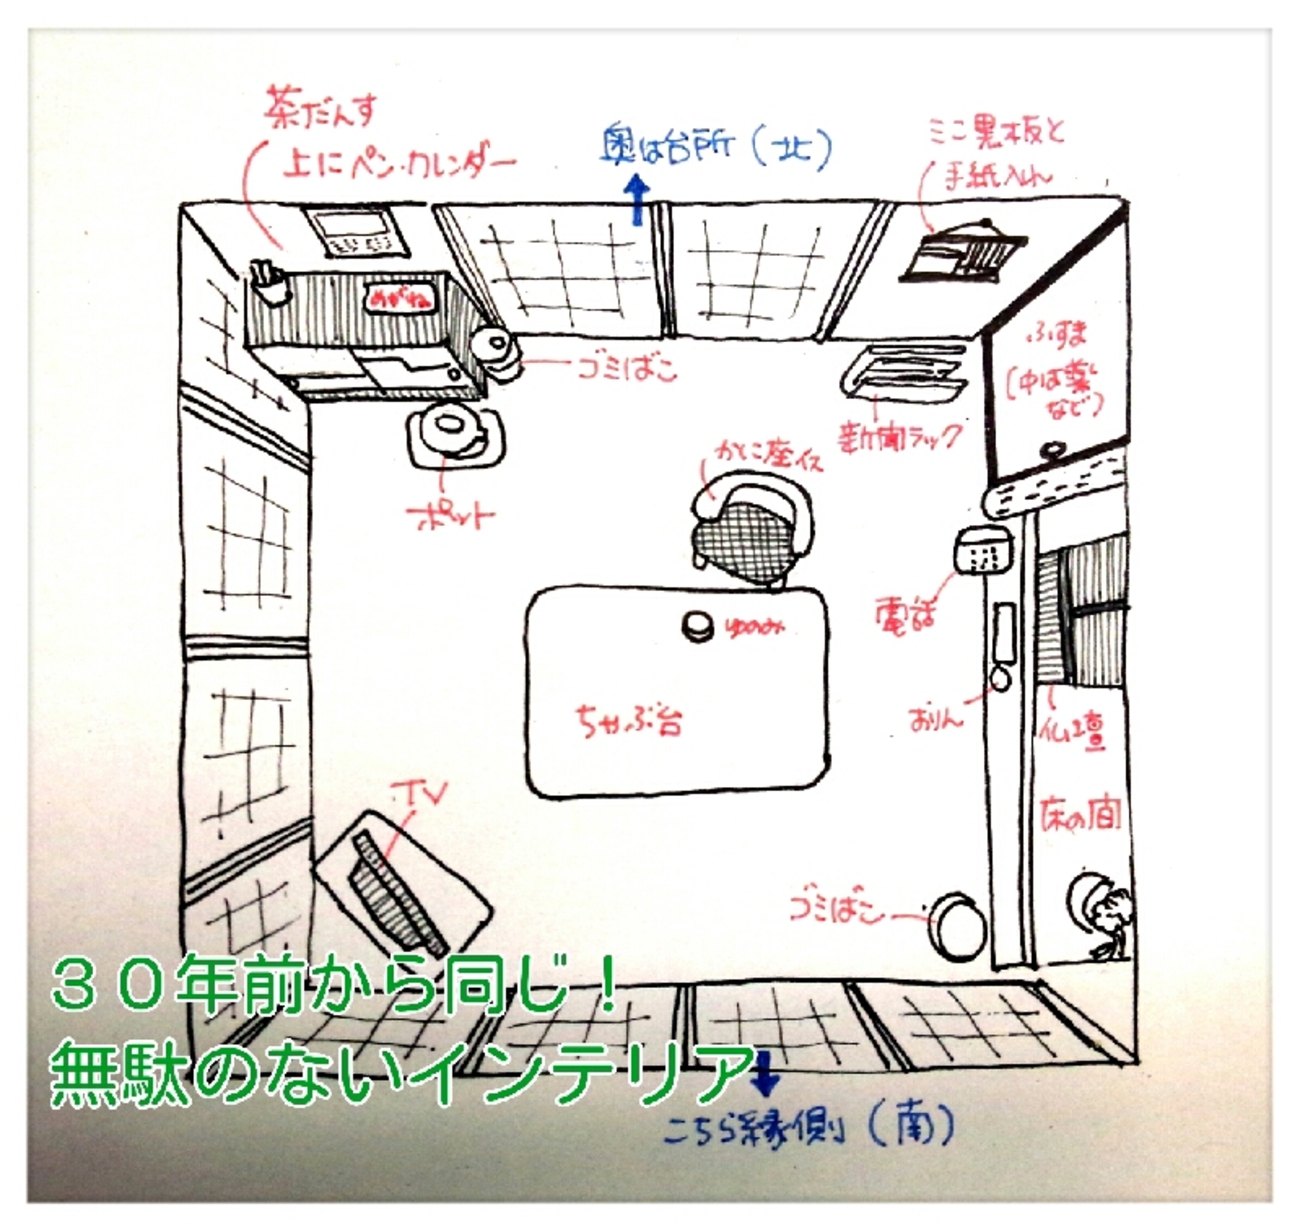 茶だんす
上にペン・カレンダー
奥は台所（北）
ミニ黒板と
手紙入れ
めがね
ゴミばこ
ふすま
（中は薬
など）
新聞ラック
かとこ座イス
ポット
電話
ゆのみ
ちゃぶ台
おりん
仏壇
TV
床の間
ゴミばこ
３０年前から同じ！
無駄のないインテリア
こちら縁側（南）